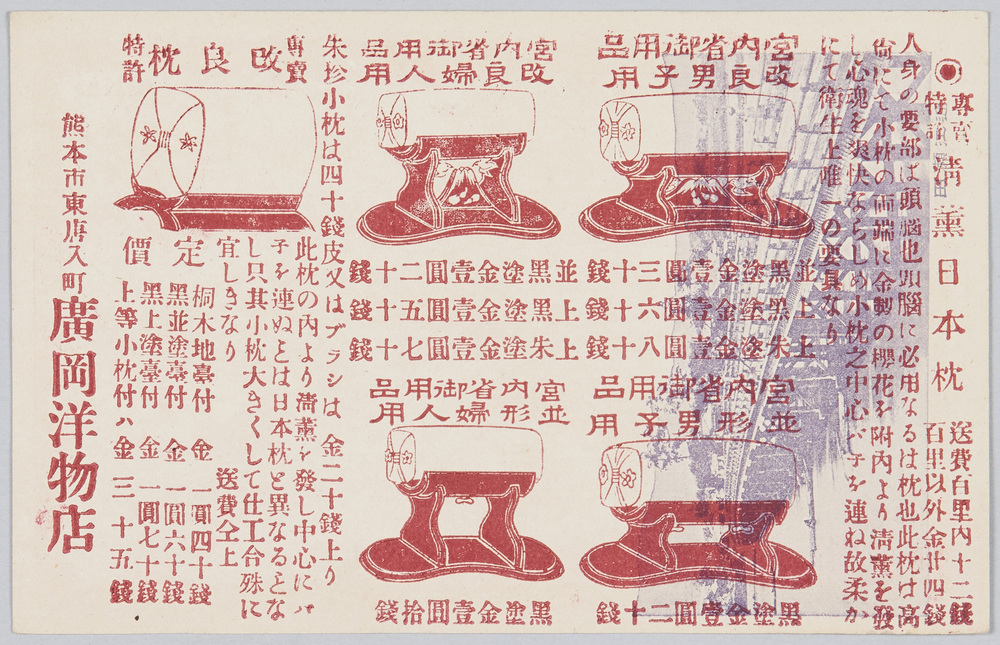 専賣特許 清薫日本枕
送費百里内十二錢
百里以外金廿四錢
人身の要部は頭腦也頭腦に必用なるは枕也此枕は高
尚にて小枕の両端に金製の櫻花を附内より清薫を發
し心魂を爽快ならしめ小枕之中心バ子を連ね故柔か
にて衛生上唯一の要具なり
宮内省御用品
改良男子用
並黒塗金壹圓三十錢
上黒塗金壹圓六十錢
上朱塗金壹圓八十錢
宮内省御用品
並形男子用
黒塗金壹圓二十錢
宮内省御用品
改良婦人用
並黒塗金壹圓二十錢
上黒塗金壹圓五十錢
上朱塗金壹圓七十錢
宮内省御用品
並形婦人用
黒塗金壹圓拾錢
朱珍小枕は四十錢皮又はブラシは金二十錢上り
専賣特許 改良枕
此枕の内より清薫を發し中心にバ
子を連ぬとは日本枕と異なるとな
し只其小枕大きくして仕工合殊に
宜しきなり
送費仝上
定價
桐木地臺付 金一圓四十錢
黒並塗臺付 金一圓六十錢
黒上塗臺付 金一圓七十錢
上等小枕付ハ金三十五錢
熊本市東唐人町
廣岡洋物店